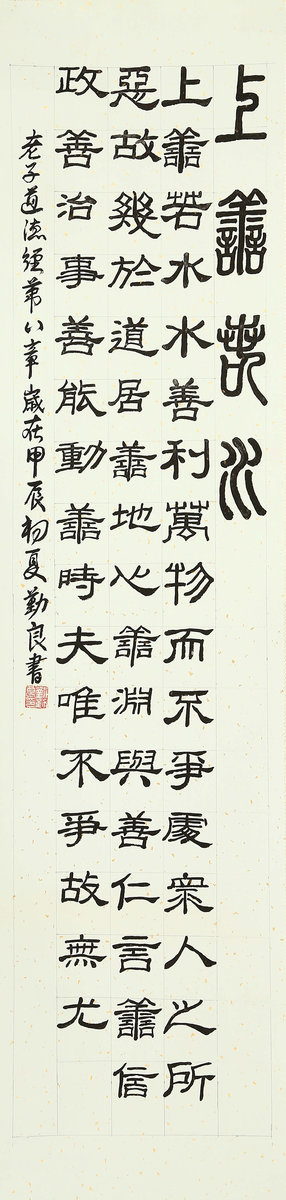 上善若水
上善若水水善利萬物而不爭處衆人之所
惡故幾於道居善地心善淵與善仁言善信
政善治事善能動善時夫唯不爭故無尤
老子道德經第八章歲在甲辰初夏勤良書